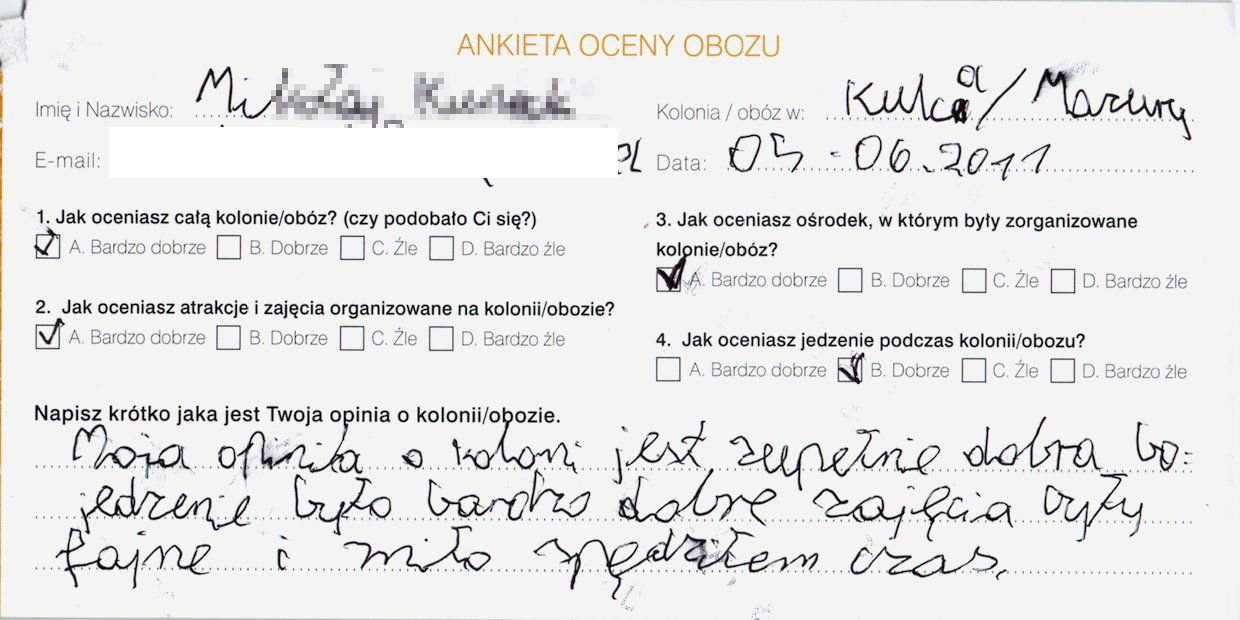 ANKIETA OCENY OBOZU
Imię i Nazwisko:
Kolonia / obóz w: Kulka/Mazury
E-mail: pl
Data: 05 - 06.2011
1. Jak oceniasz całą kolonie/obóz? (czy podobało Ci się?)
A. Bardzo dobrze B. Dobrze C. Źle D. Bardzo źle
2. Jak oceniasz atrakcje i zajęcia organizowane na kolonii/obozie?
A. Bardzo dobrze B. Dobrze C. Źle D. Bardzo źle
3. Jak oceniasz ośrodek, w którym były zorganizowane
kolonie/obóz?
A. Bardzo dobrze B. Dobrze C. Źle D. Bardzo źle
4. Jak oceniasz jedzenie podczas kolonii/obozu?
A. Bardzo dobrze B. Dobrze C. Źle D. Bardzo źle
Napisz krótko jaka jest Twoja opinia o kolonii/obozie.
Moja opinia o koloni jest zupełnie dobra bo
jedzenie było bardzo dobre zajęcia były
fajne i miło spędziłem czas.